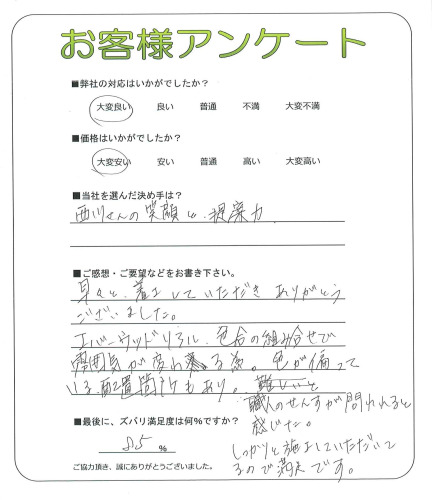 お客様アンケート
■弊社の対応はいかがでしたか？
大変良い 良い 普通 不満 大変不満
■価格はいかがでしたか？
大変安い 安い 普通 高い 大変高い
■当社を選んだ決め手は？
西川くんの笑顔と、提案力
■ご感想・ご要望などをお書き下さい。
早々と、着工していただきありがとう
ございました。
エバーウッドリアル、色合の組み合せで
雰囲気が変わる為。色が偏って
いる配置箇所もあり。難しいと
職人のせんすが問われると
感じた。
しっかりと施工していただいて
るので満足です。
■最後に、ズバリ満足度は何％ですか？
85 ％
ご協力頂き、誠にありがとうございました。